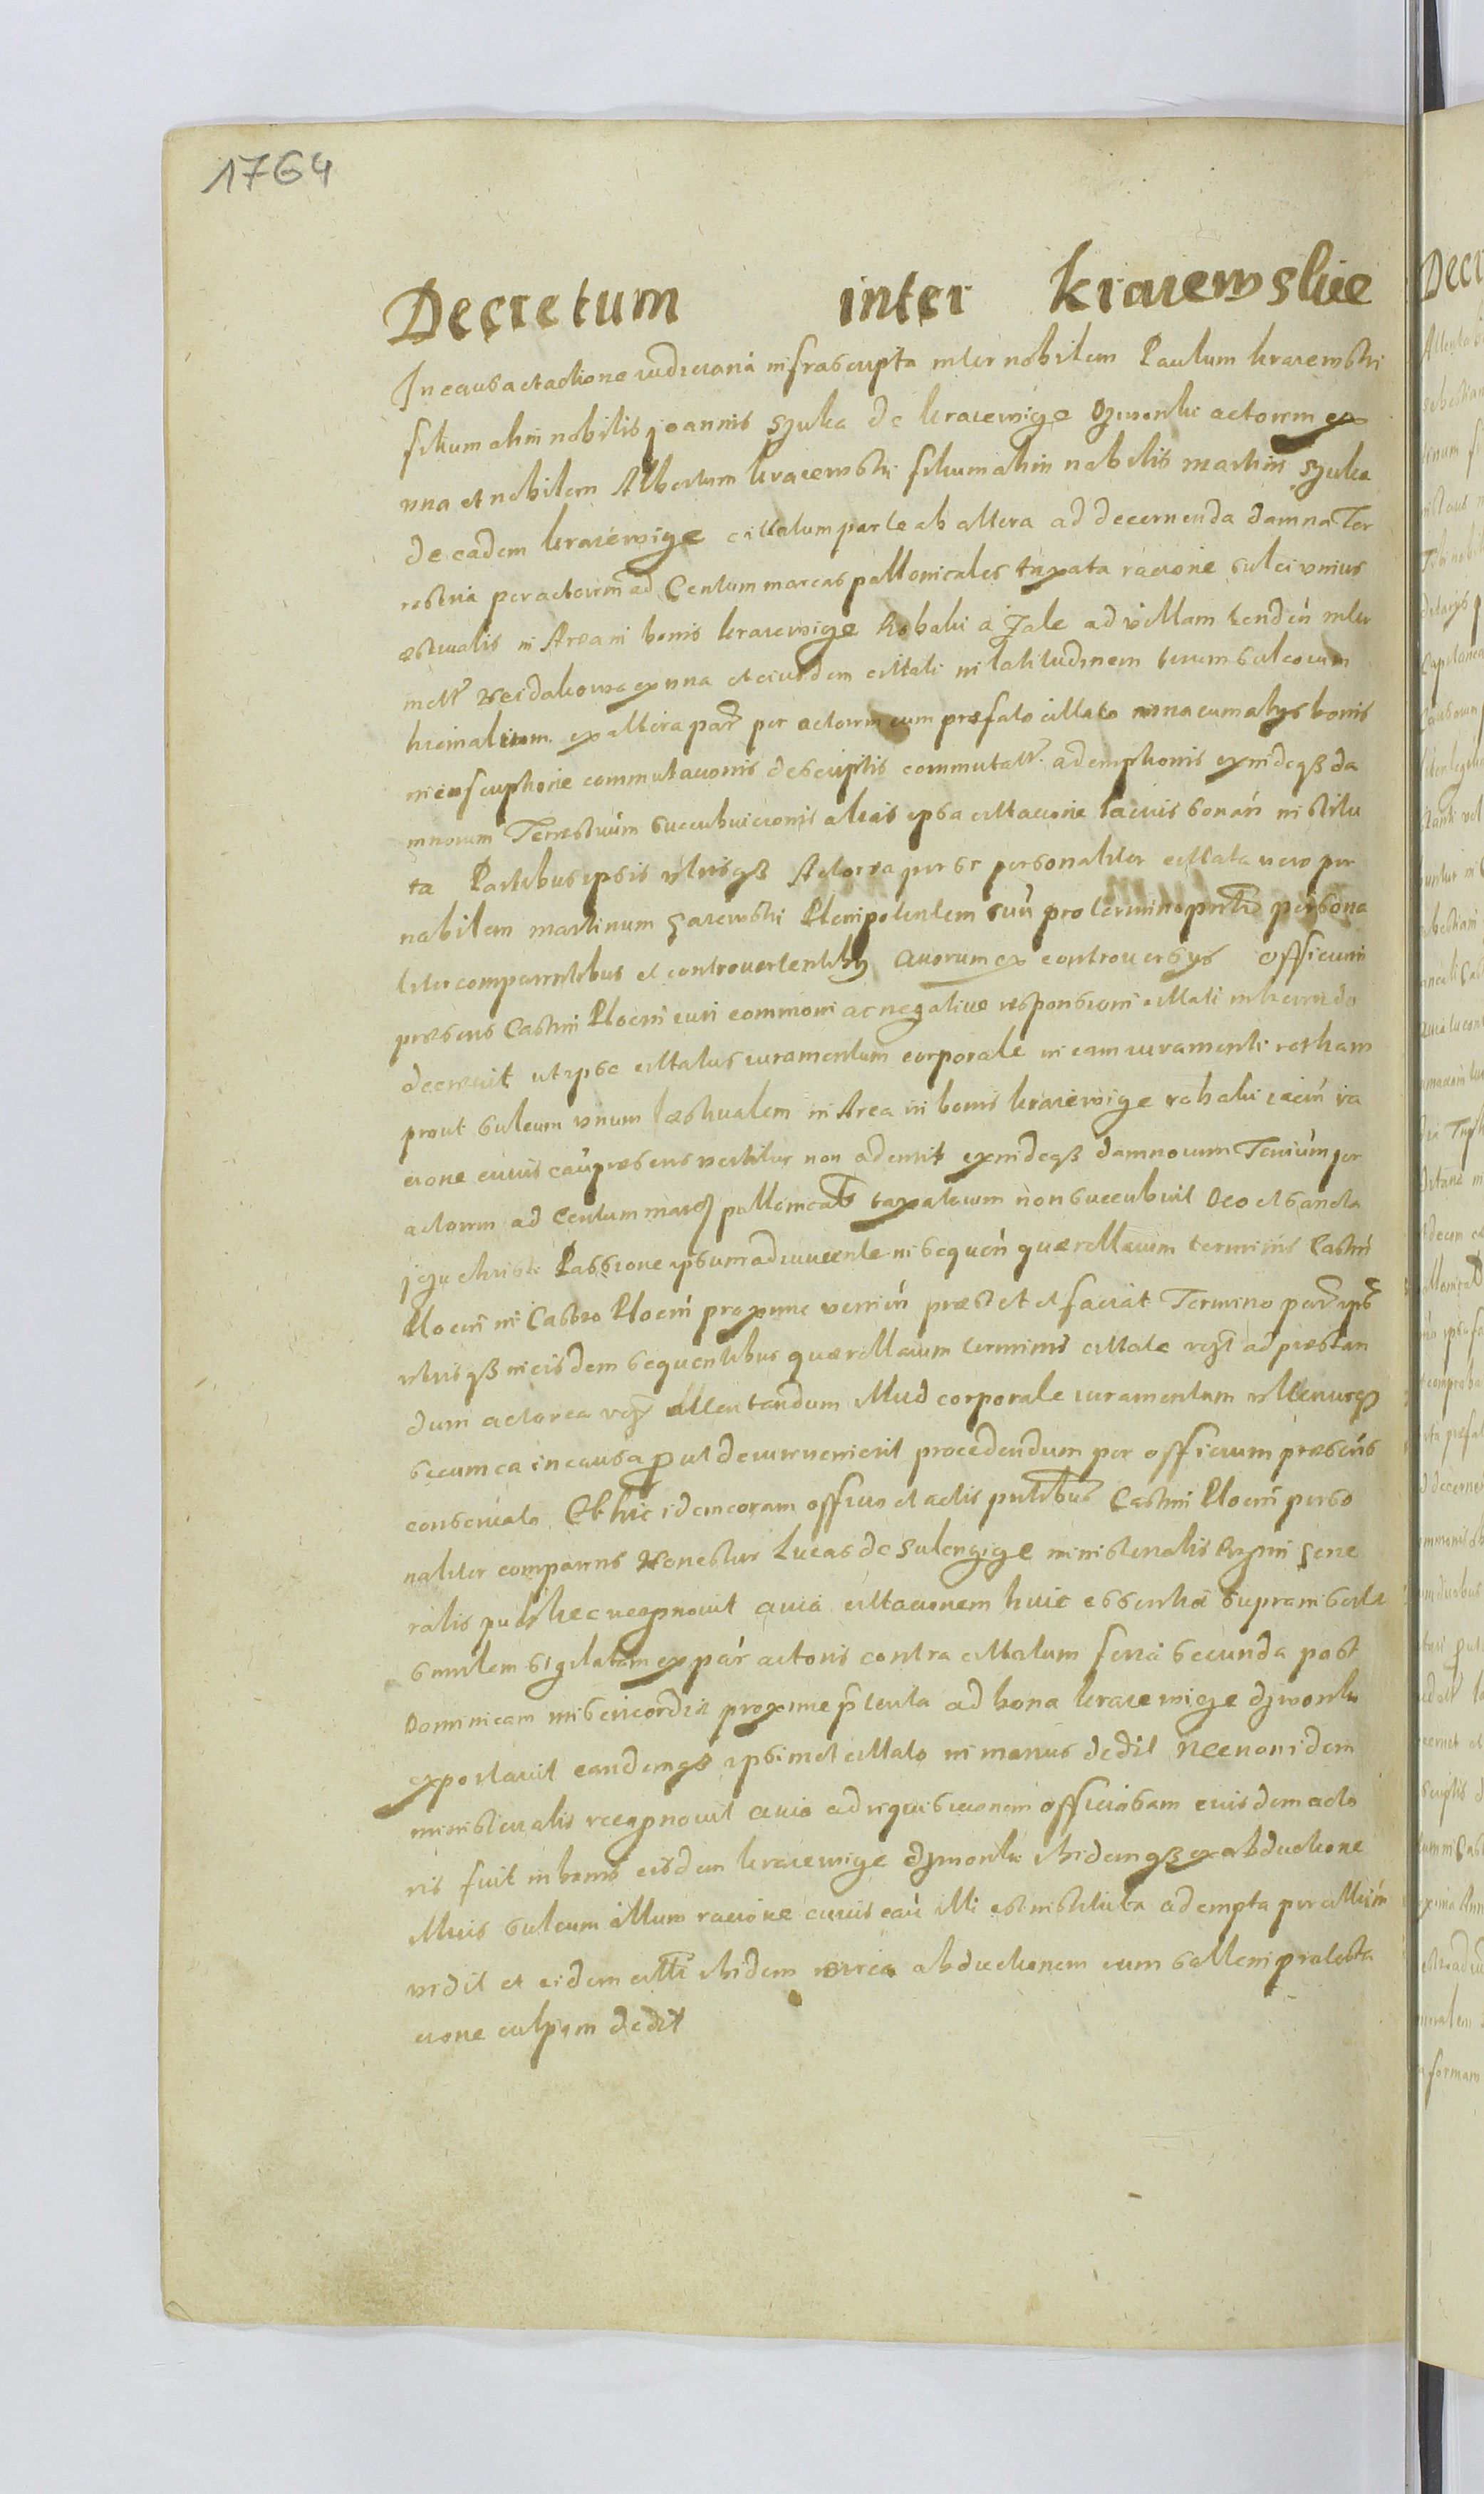 1764
Decretum inter kraiewskie
In causa et actione iudiciaria infrascripta inter nobilem Paulum kraiewski
filium olim nobilis Joannis Szuba de kraiewige Dzwonki actorem ex
una et nobilem Albertum kraiewski filium olim nobilis martini Szuba
de eadem kraiewige cittatum parte ab altera ad decernenda damna Ter
restria per actorem ad Centum marcas pollonicales taxata racione sulci unius
æstivalis in Area in bonis kraiewige Robaki a Jale ad villam tendeń inter
ex una et eiusdem cittati in latitudinem trium sulcorum
hiemalium ex altera par per actorem cum præfato cittato una cum alys bonis
in inscriptione commutacionis descriptis commutat ademptionis exindeqz da
mnorum Terrestrium succubuicionis alias ipsa cittacione lacius sonań institu
ta Partibus ipsis utrisqz Actorea per se personaliter cittata vero per
nobilem martinum Plenipotentem suu pro termino pnti persona
liter comparentibus et controvertentibus Quorum ex controversys officium
præsens Castrñ Plocen iuri communi ac negativæ responsioni cittati inhærendo
decrevit ut ipse cittatus iuramentum corporale in eam iuramenti rotham
prout sulcum unum æstivalem in Area in bonis kraiewige robaki iaceń ra
cione cuius cau præsens vertitur non ademit exindeqz damnorum Terrium per
actorem ad Centum marcz pollonicals taxatorum non succubuit Deo et sancta
jezu christi Passione ipsum adiuvente in sequeń quærellarum terminis Castrñ
Plocen in Castro Plocen proxime venien præstet et faciat Termino par ipis
utrisqz in eisdem sequentibus quærellarum terminis cittatæ ad præstan
dum actoreæ attentandum illud corporale iuramentum ulteriusqz
secum ea in causa prout de iure venierit procedendum per officium præsens
conservato Et hic idem coram officio et actis pntibus Castrñ Plocen perso
naliter comparens Honestus Lucas de Sulengige ministerialis Regni Gene
ralis publice recognovit quia cittacionem huic essentia supra inserta
similem sigilatam ex par actoris contra cittatum feria secunda post
Dominicam misericordiæ proxime pterita ad bona kraiewige dzwonki
exportavit eandemqz ipsimet cittato in manus dedit Necnon idem
ministerialis recognovit quia ad requisicionem officiosam eiusdem acto
ris fuit in bonis eisdem kraiewige dzwonki ibidemqz ex abductione
illius sulcum illum racione cuius cau illi est instituta adempta per citten
vidit et eidem citti ibidem circa abductionem cum solleni protesta
cione culpam dedit